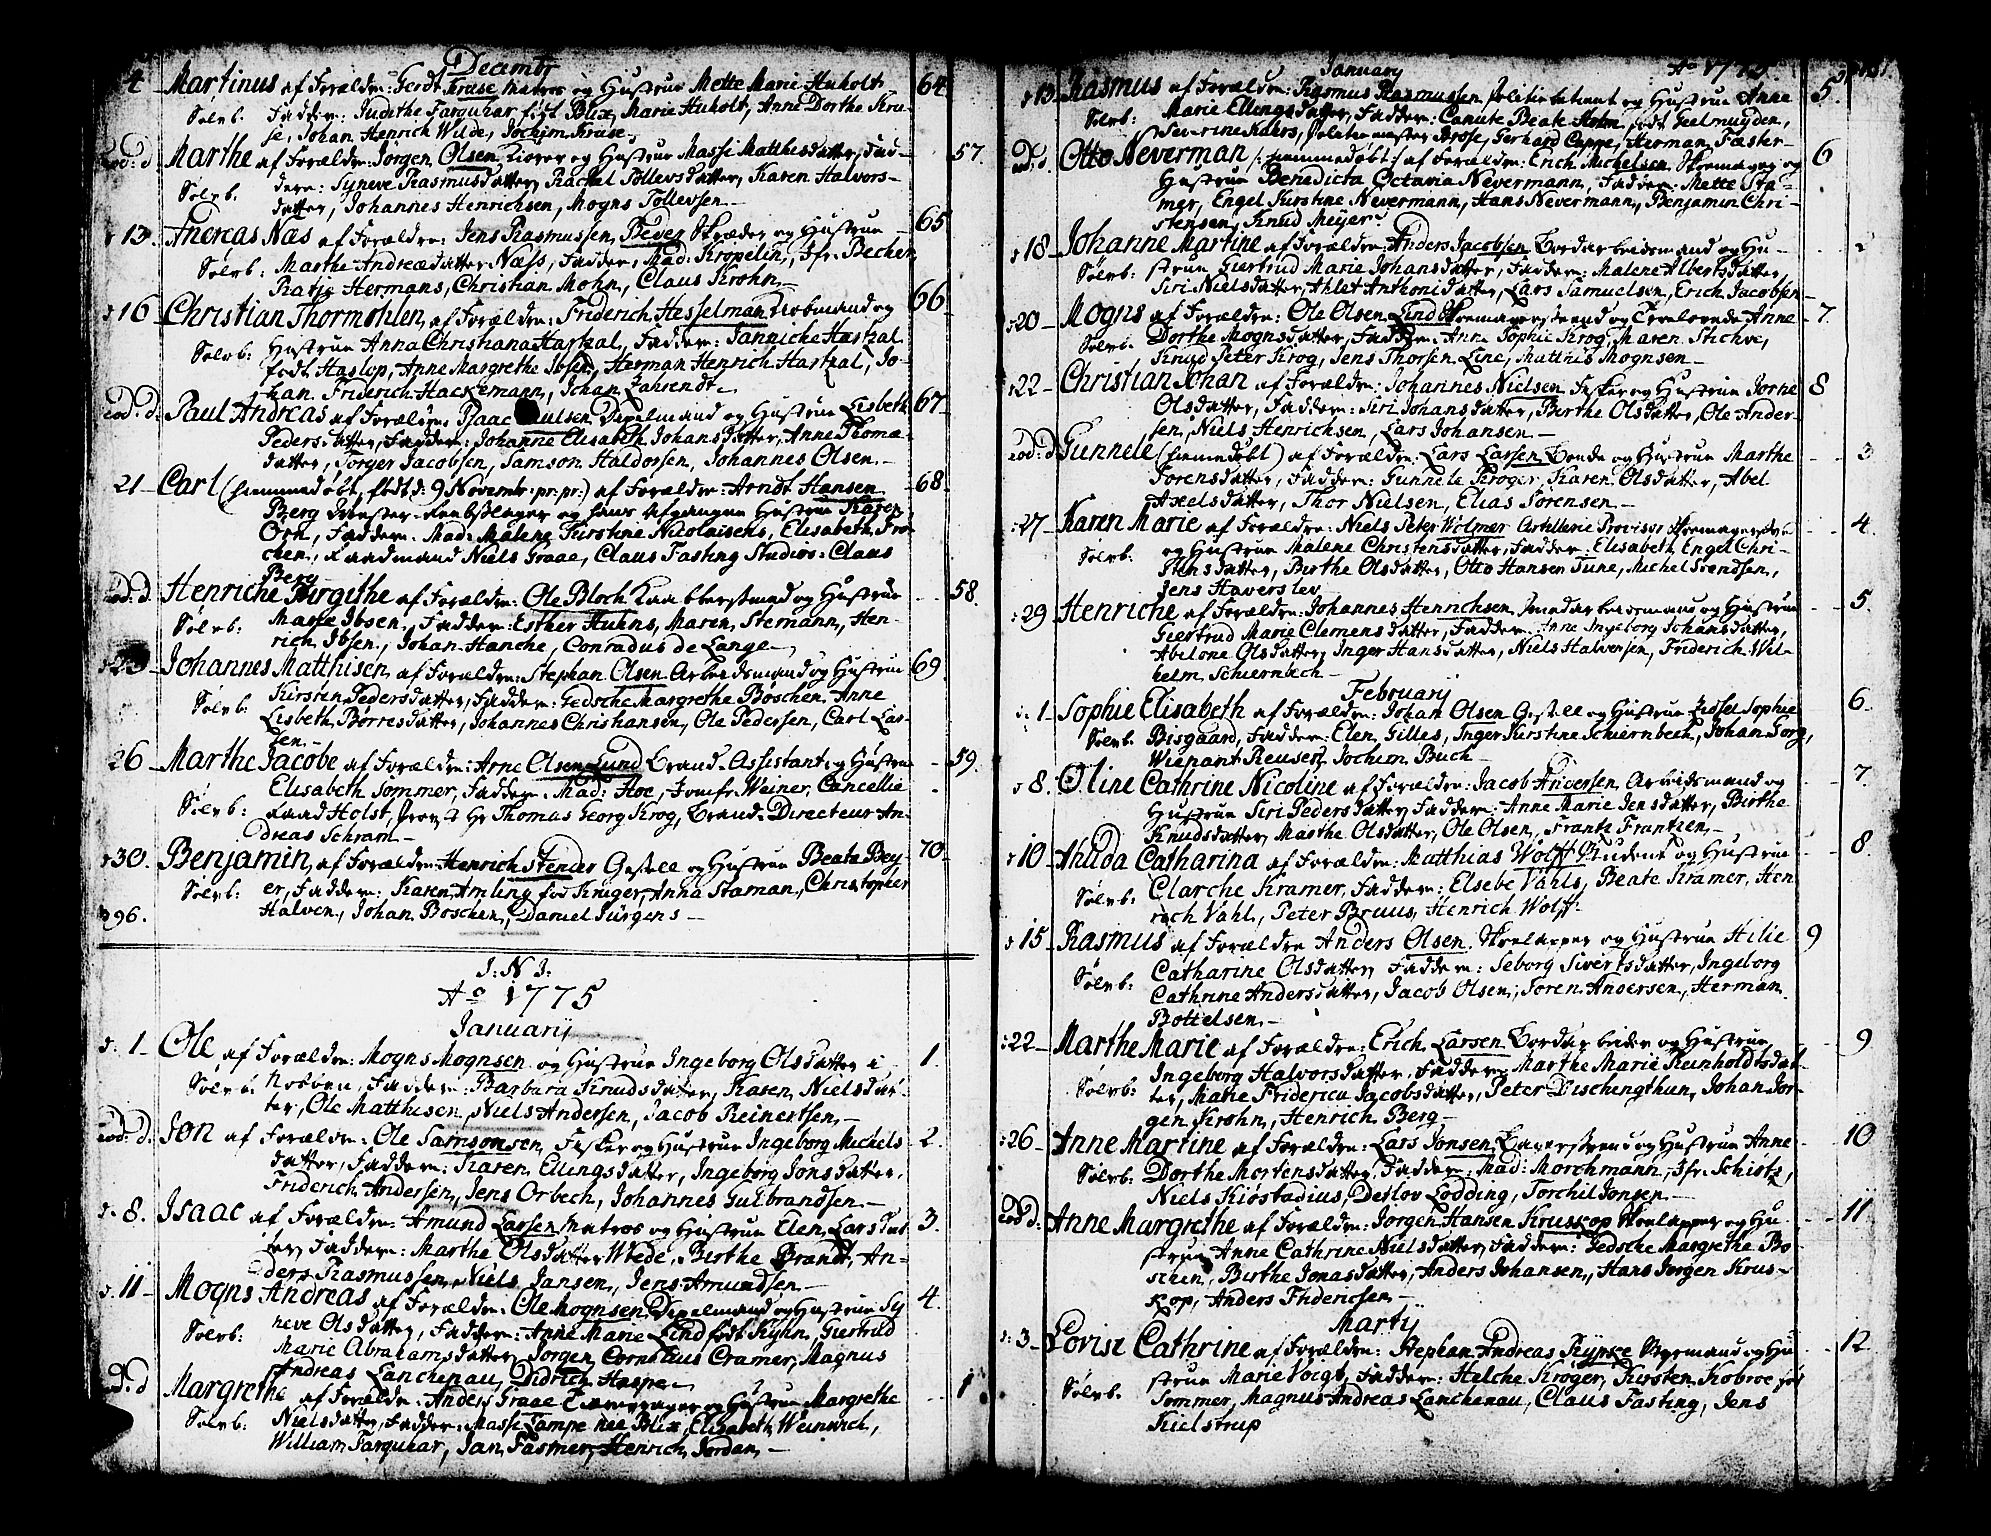 Decembr
4 Martinus af Forældre: Gerdt Kruse Matros og Hustrue Mette Marie Huholt 64
Sølvb. Faddere: Judithe Farquhar født Blix, Marie Huholt, Anne Dorthe Kru-
se, Johan Henrich Wilde, Jochim Kruse.
eod: d Marthe af Forældre: Jørgen Olsen og Hustrue Masse Matthisdatter, Fad- 57.
Sølvb. dere: Syneve Rasmusdatter, Rachel Tollevsdatter, Karen Halvors-
datter, Johannes Henrichsen, Mogns Tollevsen.
13. Andreas Næs af Forældre: Jens Rasmussen Beyer Skræder og Hustrue 65
Sølvb: Marthe Andreædatter Næss, Faddere: Mad: Kropelin, Jfr. Bechen,
Katje Hermans, Christian Mohn, Claus Krohn.
16 Christian Thormohlen, af Forældre: Friderich Hesselman og 66
Sølvb: Hustrue Anna Christiana Hartzal, Faddere: Jannicke Hartzal
født Haslop, Anne Margrethe Ibsen, Herman Henrich Hartzal, Jo-
han Friderich Hackemann, Johan Zahrendt.
eod: d. Paul Andreas af Forældre Isaac Dragelmand og Hustrue Lisbeth 67
Pedersdatter, Faddere: Johanne Elisabeth Johansdatter, Anne Thoma-
datter, Torger Jacobsen, Samson Haldorsen, Johannes Olsen.
21 Carl (hiemmedøbt, født d: 9 Novembr: pr: pr:) af Forældre: Arndt Hansen 68
Berg og hans afgangne Hustrue Karen
Orn, Faddere: Mad: Malene Kirstine Nicolaisens, Elisabeth Fro-
chen, Raadmand Niels Graae, Claus Fasting Studios: Claus
Berg
eod: d. Henriche Birgithe af Forældre: Ole Bloch og Hustrue 58.
Sølvb: Masse Ibsen, Faddere: Esther Huhns, Maren Stemann, Hen-
rich Ibsen, Johan Hanche, Conradus de Lange.
23 Johannes Matthisen, af Forældre: Stephan Olsen Arbeidsmand og Hustrue 69
Sølvb: Kirsten Pedersdatter, Faddere: Gedsche Margrethe Böschen, Anne
Lisbeth Børresdatter, Johannes Christiansen, Ole Pedersen, Carl Lar-
sen.
26 Marthe Jacobe af Forældre: Arne Olsen Lund Brand-Assistant og Hustrue 59.
Elisabeth Sommer, Faddere: Mad: Hoe, Jomfr Weiner, Cancellie
Sølvb: Raad Holst, Hr Thomas Georg Krog, Brand-Directeur An-
dreas Schram.
30. Benjamin, af Forældre: Henrich Stender Gesell og Hustrue Beata Bey 70
Sølvb: er, Faddere: Karen Amling fød Kruger, Anna Staman, Christopher
96. Halven, Johan Böschen, Daniel Jürgens
J. N. J.
Ao 1775
Januarij
d: 1 Ole af Forældre: Mogns Mognsen og Hustrue Ingeborg Olsdatter i 1.
Sølvb. Faddere: Barbara Knudsdatter, Karen Nielsdat-
ter, Ole Matthisen, Niels Andersen, Jacob Reinertsen,
eod: d. Jon af Forældre: Ole Samsonsen Fisker og Hustrue Ingeborg Michels 2.
datter, Faddere: Karen Ellingsdatter, Ingeborg Jonsdatter,
Friderich Andersen, Jens Orbech, Johannes Gulbrandsen.
d. 8. Isaac af Forældre: Amund Larsen Matros og Hustrue Elen Larsdat 3.
ter, Faddere: Marthe Olsdatter Wede, Birthe Brandt, An-
ders Rasmussen, Niels Jansen, Jens Amundsen
d. 11 Mogns Andreas af Forældre: Ole Mognsen Dragelmand og Hustrue Sy 4.
Sølvb: neve Olsdatter, Faddere: Anne Marie Lind født Kyhn, Giertrud
Marie Abrahamsdatter, Jørgen Cornelius Cramer, Magnus
Andreas Lanchenau, Didrich Haspe
eod: d Margrethe af Forældre: Anders Graae og Hustrue Margrethe 1
Sølvb: Nielsdatter, Faddere: Masse Lampe née Blix, Elisabeth Weinwich,
William Farquhar, Jan Fasmer, Henrich Jordan.
Januarij Ao 1775
13 Rasmus af Forældre: Rasmus Rasmussen Politiebetient og Hustrue Anne 5.
Sølvb: Marie Ellingsdatter, Faddere: Canute Beate Holm født Geelmuyden,
Severine Kahrs, Politiemester Brose, Gerhard Cappe, Herman Faster-
eod: d. Otto Neverman /: hiemmedøbt :/ af Forældre: Erich Michelsen Skomager og 6
Hustrue Benedicta Octavia Nevermann, Faddere: Mette Sta-
mer, Engel Kirstine Nevermann, Hans Nevermann, Benjamin Chri-
stensen, Knud Meyer.
18 Johanne Martine af Forældre: Anders Jacobsen Bordarbeidsmand og Hu- 2
Sølvb: strue Giertrud Marie Johansdatter, Faddere: Malene Albertsdatter,
Siri Nielsdatter, Ahlet Anthonidatter, Lars Samuelsen, Erich Jacobsen
20 Mogns af Forældre: Ole Olsen Lind Skomagersvend og Trolovede Anne 7.
Sølvb. Dorthe Mognsdatter, Faddere: Anne Sophie Krog, Maren Stichve,
Knud Peter Krog, Jens Thorsen Line, Matthis Mognsen
22 Christian Johan af Forældre: Johannes Nielsen Fisker og Hustrue Jorne 8
Olsdatter, Faddere: Siri Johansdatter, Birthe Olsdatter, Ole Ander-
sen, Niels Henrichsen, Lars Johansen.
eod: d Gunnele (hiemmedøbt) af Forældre: Lars Larsen Bonde og Hustrue Marthe 3
Sorensdatter, Faddere: Gunnele Kroger, Karen Olsdatter, Abel
Axelsdatter, Thor Nielsen, Elias Sorensen.
27 Karen Marie af Forældre: Niels Peter Wolmer Artillerie Provisor 4.
Sølvb: og Hustrue Malene Christensdatter, Faddere: Elisabeth Engel Chri-
stensdatter, Birthe Olsdatter, Otto Hansen Tune, Michel Svendsen,
Jens Haverslev
29 Henriche af Forældre: Johannes Henrichsen og Hustrue 5.
Geertrud Marie Clemensdatter, Faddere: Anne Ingeborg Johansdatter,
Abelone Olsdatter, Inger Hansdatter, Niels Halvorsen, Friderich Wil-
helm Schiernbech
Februarij
d: 1 Sophie Elisabeth af Forældre: Johan Olsen Gesell og Hustrue Zidsel Sophie 6.
Sølvb. Bisgaard, Faddere: Elen Gilles, Inger Kirstine Schiernbech, Johan Jorg,
Wiepant Reuser, Jochim Buch
8. Oline Cathrine Nicoline af Forældre: Jacob Andersen Arbeidsmand og 7.
Hustrue Siri Pedersdatter, Faddere: Anne Marie Jensdatter, Birthe
Knudsdatter, Marthe Olsdatter, Ole Olsen, Frantz Frantzen,
10 Anilda Catharina af Forældre: Matthias Wolff Student og Hustrue 8.
Sølvb: Clarche Kramer, Faddere: Elsebe Vahls, Beate Kramer, Hen
rich Vahl, Peter Bruus, Henrich Wolff.
15 Rasmus af Forældre Anders Olsen Skoelapper og Hustrue Hilie 9
Sølvb: Catharine Olsdatter, Faddere: Seborg Sivertsdatter, Ingeborg
Cathrine Andersdatter, Jacob Olsen, Soren Andersen, Herman
Bottelsen.
22 Marthe Marie af Forældre: Erich Larsen Bordarbeider og Hustrue 9
Ingeborg Halvorsdatter, Faddere: Marthe Marie Reinholdtsdat-
Sølvb: ter, Marie Friderica Jacobsdatter, Peter Dischingthun, Johan Jør-
gen Krohn, Henrich Berg
26 Anne Martine af Forældre: Lars Jonsen og Hustrue Anne 10
Sølvb: Dorthe Mortensdatter, Faddere: Mad: Morchmann, Jfr. Schiøtz,
Niels Kiøstadius, Detlov Lodding, Torchil Jonsen.
eod: d. Anne Margrethe af Forældre: Jørgen Hansen Kruskop Skoelapper og Hu- 11
strue Anne Cathrine Nielsdatter, Faddere: Gedsche Margrethe Bo-
schen, Birthe Jonasdatter, Anders Johansen, Hans Jørgen Krus-
kop, Anders Friderichsen
Martij
d: 3 Lovise Cathrine af Forældre: Stephan Andreas Rynske og Hu 12.
Sølvb: strue Marie Voigt, Faddere: Helche Krøger, Kirsten Kobroe fød
Sommer, Magnus Andreas Lanchenau, Claus Fasting, Jens
Kielstrup